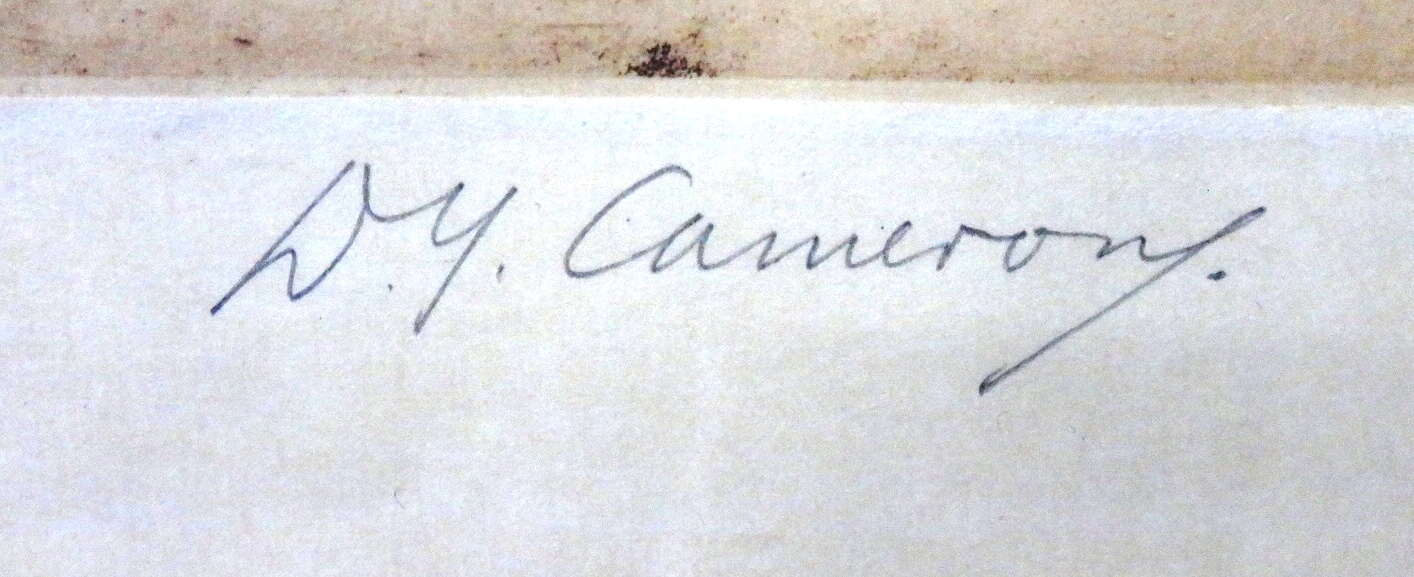 D.Y. Cameron.